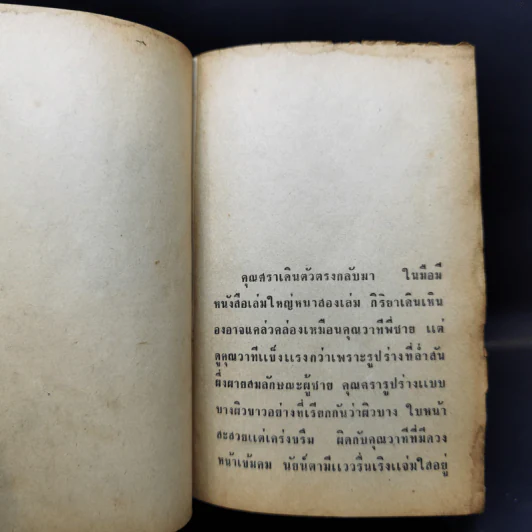 คุณสราเดินตัวตรงกลับมา ในมือมี
หนังสือเล่มใหญ่หนาสองเล่ม กิริยาเดินเหิน
องอาจแคล่วคล่องเหมือนคุณวาทีพี่ชาย แต่
ดูคุณวาทีแข็งแรงกว่าเพราะรูปร่างที่ล่ำสัน
ผึ่งผายสมลักษณะผู้ชาย คุณสรารูปร่างแบบ
บางผิวขาวอย่างที่เรียกกันว่าผิวบาง ใบหน้า
สะสวยแต่เคร่งขรึม ผิดกับคุณวาทีที่มีดวง
หน้าเข้มคม นัยน์ตามีแววรื่นเริงแจ่มใสอยู่